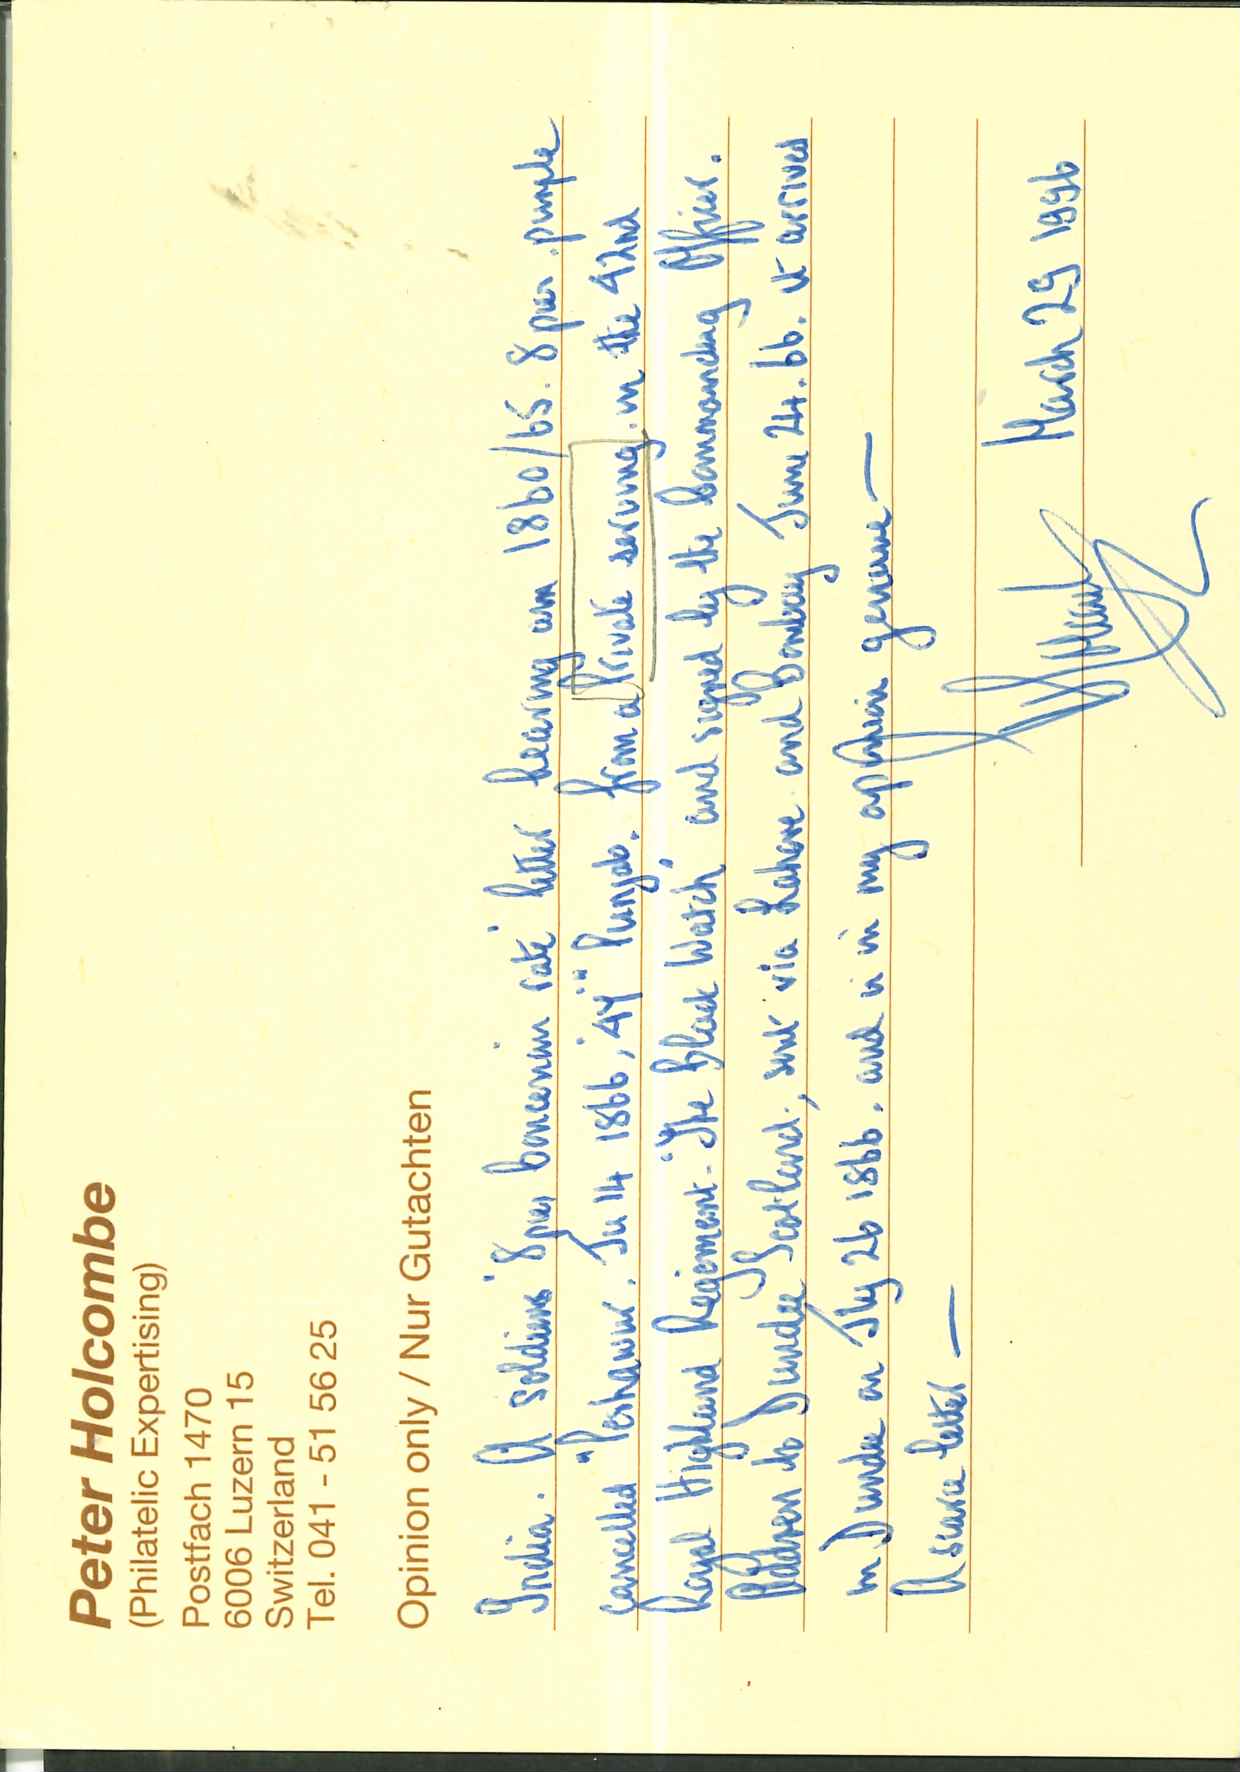 Peter Holcombe
(Philatelic Expertising)
Postfach 1470
6006 Luzern 15
Switzerland
Tel. 041 - 51 56 25
Opinion only / Nur Gutachten
India. A soldiers' '8 pies Concession rate' letter bearing an 1860/65. 8 pies. purple
cancelled "Peshawur. Ju 14 1866, '47'" Punjab. from a Private serving in the 42nd
Royal Highland Regiment - 'The Black Watch', and signed by the Commanding Officer.
Addressed to Dundee Scotland, sent via Lahore and Bombay June 24. 66. it arrived
in Dundee on Jly 26 1866. and is in my opinion genuine —
A scarce letter —
March 29 1996